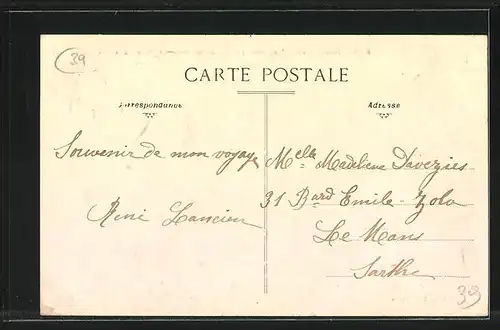 39
CARTE POSTALE
Correspondance
Adresse
Souvenir de mon voyage
René Lancien
Melle Madeleine Davezies
31 Bard Emile-Zola
Le Mans
Sarthe
39